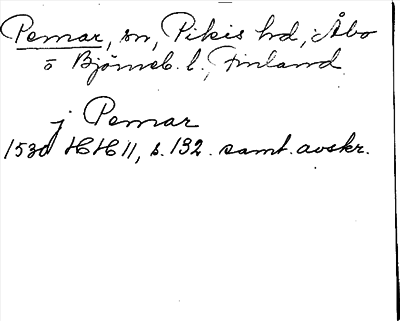 Pemar, sn, Pikis hd, Åbo
o Björneb. l., Finland
j Pemar
1530 HH II, s. 132. samt. avskr.